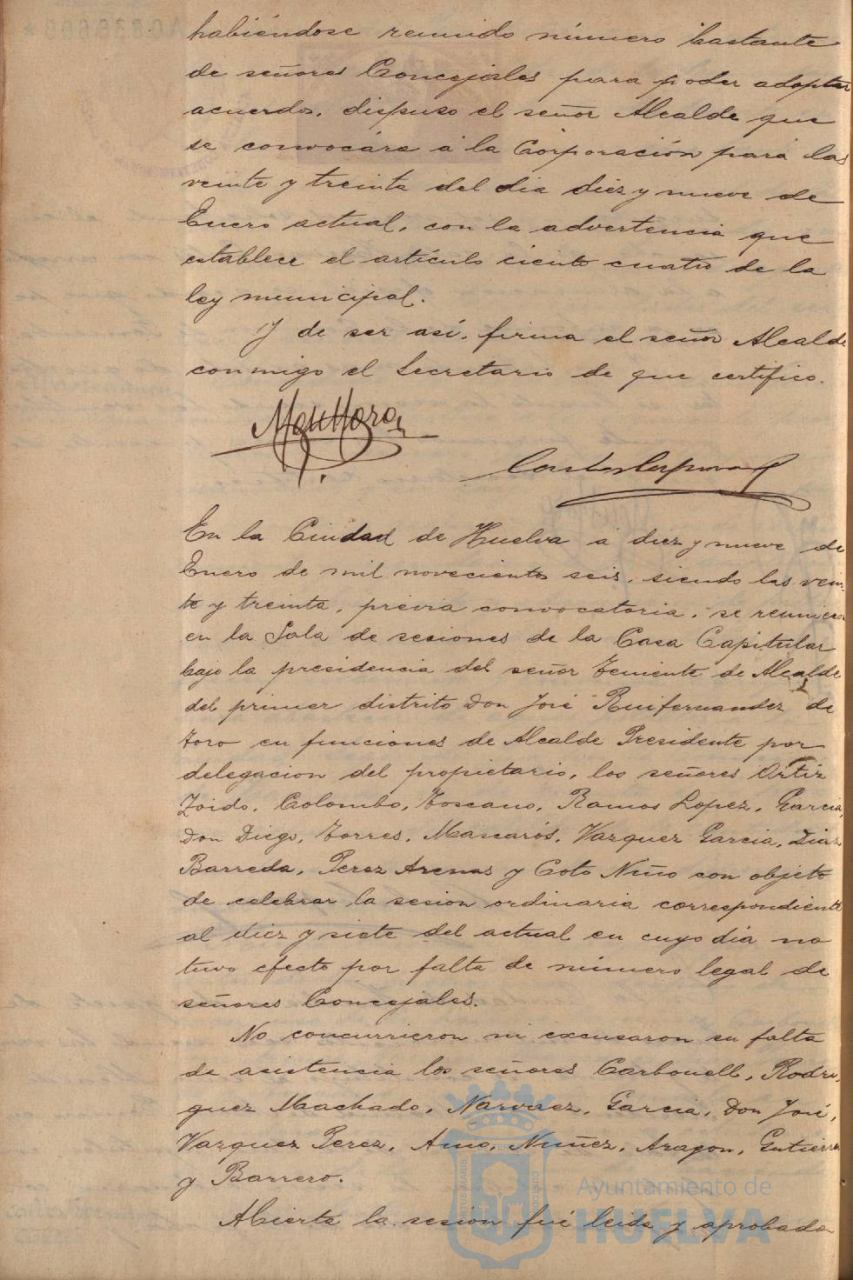 habiéndose reunido número bastante
de señores Concejales para poder adoptar
acuerdo, dispuso el señor Alcalde que
se convocára á la Corporación para las
veinte y treinta del dia diez y nueve de
Enero actual, con la advertencia que
establece el artículo ciento cuatro de la
ley municipal.
Y de ser así, firma el señor Alcalde
conmigo el Secretario de que certifico.
En la Ciudad de Huelva a diez y nueve de
Enero de mil novecientos seis, siendo las vein-
te y treinta, prévia convocatoria, se reunieron
en la Sala de sesiones de la Casa Capitular
bajo la presidencia del señor Teniente de Alcalde
del primer distrito Don José Ruifernandez de
Toro en funciones de Alcalde Presidente por
delegacion del propietario, los señores Ortiz
Zoido, Colombo, Toscano, Ramos Lopez, Garcia,
Don Diego, Torres, Mascarós, Vazquez Garcia, Diaz
Barreda, Perez Arenas y Coto Niño con objeto
de celebrar la sesion ordinaria correspondiente
al diez y siete del actual en cuyo dia no
tuvo efecto por falta de número legal de
señores Concejales.
No concurrieron ni excusaron su falta
de asistencia los señores Carbonell, Rodri-
guez Machado, Narvaez, Garcia, Don José,
Vazquez Perez, Amo, Nuñez, Aragon, Gutierrez
y Barrero.
Abierta la sesión fué leida y aprobada
Ayuntamiento de
HUELVA